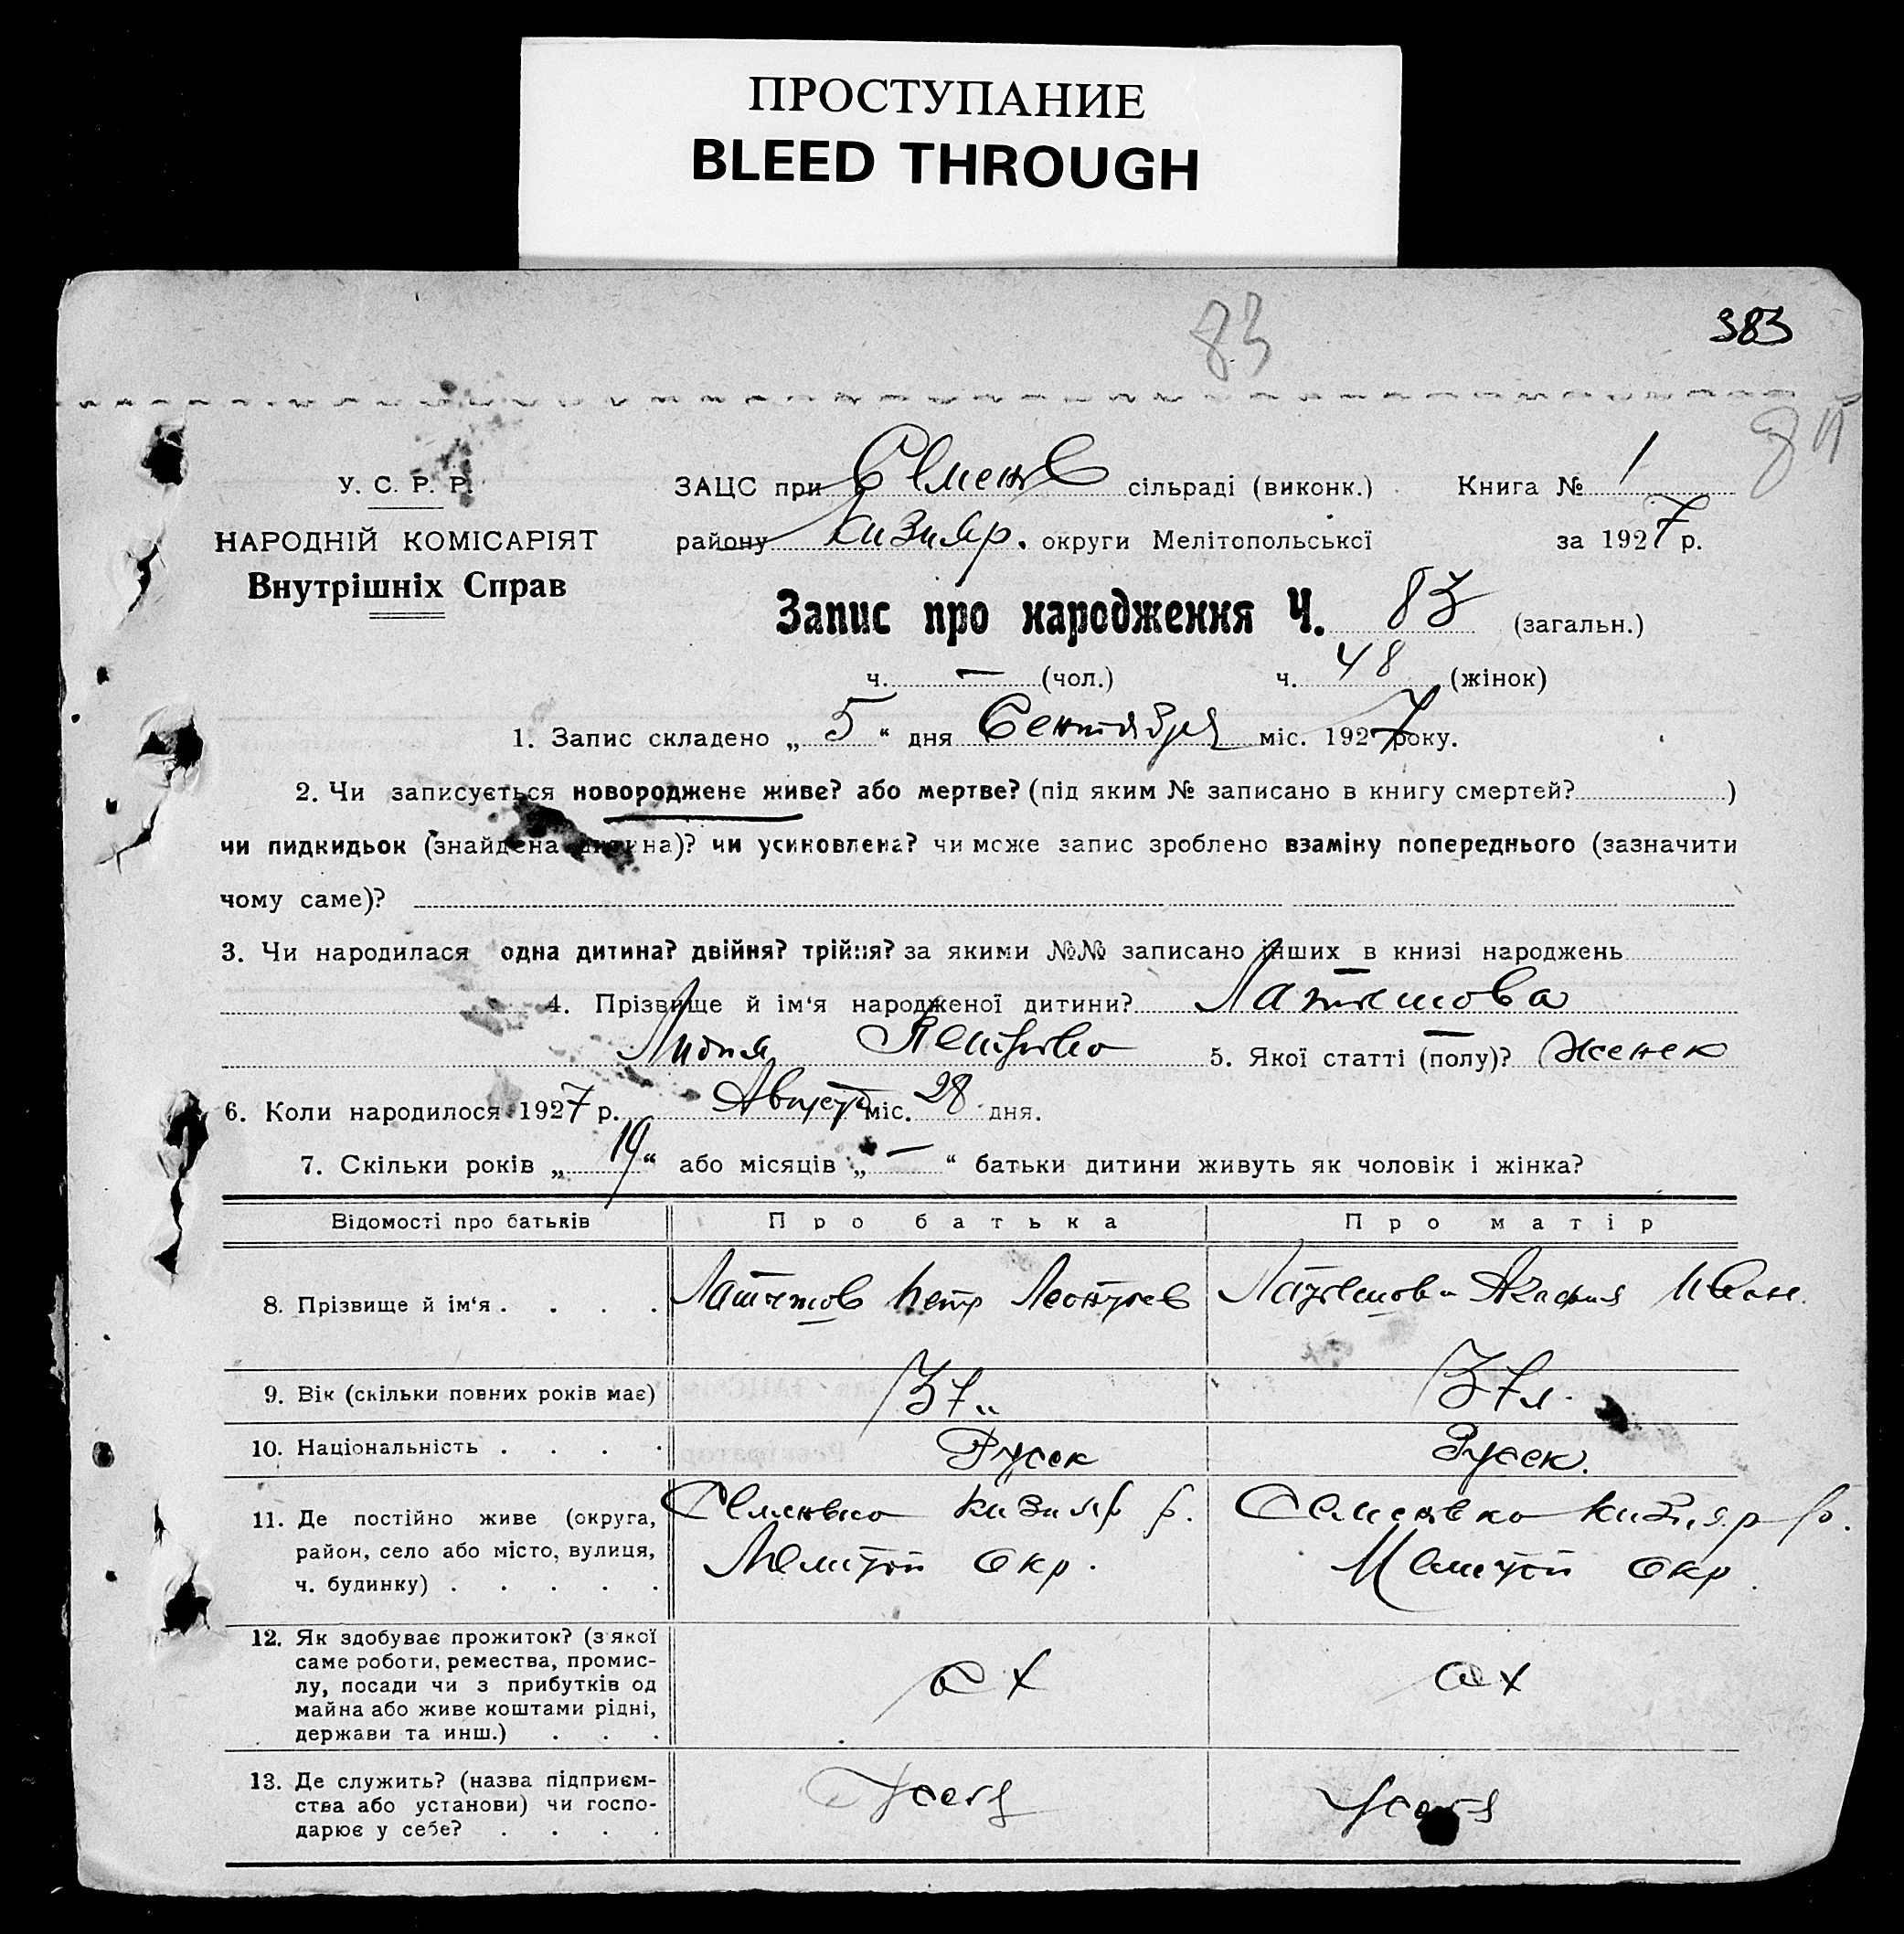 ПРОСТУПАНИЕ
BLEED THROUGH
83
383
84
У. С. Р. Р.
НАРОДНІЙ КОМІСАРІЯТ
Внутрішніх Справ
ЗАЦС при Семенов сільраді (виконк.) Книга № 1
району Кизияр. округи Мелітопольської за 1927 р.
Запис про народження Ч. 83 (загальн.)
ч. — (чол.) ч. 48 (жінок)
1. Запис складено „ 5 “ дня Сентября міс. 1927 року.
2. Чи записується новороджене живе? або мертве? (під яким № записано в книгу смертей? )
чи пидкидьок (знайдена дитина)? чи усиновлена? чи може запис зроблено взаміну попереднього (зазначити
чому саме)?
3. Чи народилася одна дитина? двійня? трійня? за якими №№ записано інших в книзі народжень —
4. Прізвище й ім‘я народженої дитини? Латишова
Лидия Петровна 5. Якої статті (полу)? женск
6. Коли народилося 1927 р. Август міс. 28 дня.
7. Скільки років „ 19 “ або місяців „ — “ батьки дитини живуть як чоловік і жінка?
Відомості про батьків Про батька Про матір
8. Прізвище й ім‘я . . . . Латишов Петр Леонтьев Латишова Агафия Иван.
9. Вік (скільки повних років має) 37 л. 37 л.
10. Національність . . . . Русск Русск.
11. Де постійно живе (округа, Семеновка Кизияр р. Семеновка Кизияр р.
район, село або місто, вулиця, Мелитоп окр. Мелитоп окр.
ч. будинку) . . . . .
12. Як здобуває прожиток? (з якої
саме роботи, ремества, промис-
лу, посади чи з прибутків од сх сх
майна або живе коштами рідні,
держави та инш.) . . .
13. Де служить? (назва підприєм-
ства або установи) чи госпо- У себя У себя
дарює у себе? . . . .